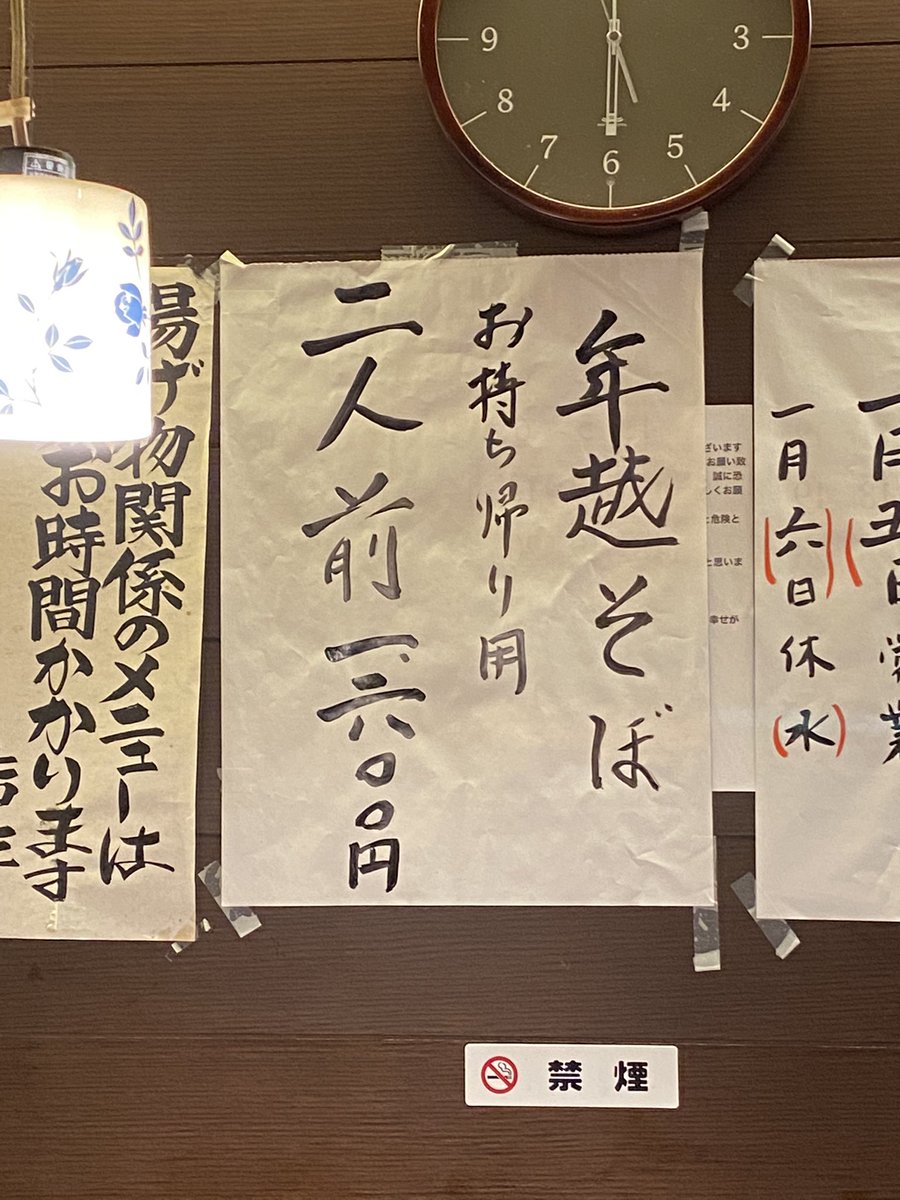 9
3
8
4
7
5
6
一月五日営業
一月(六)日休(水)
ざいます
お願い致
誠に恐
しくお願
と危険と
と思いま
幸せが
年越そば
お持ち帰り用
二人前 一、六〇〇円
揚げ物関係のメニューは
お時間かかります
禁煙